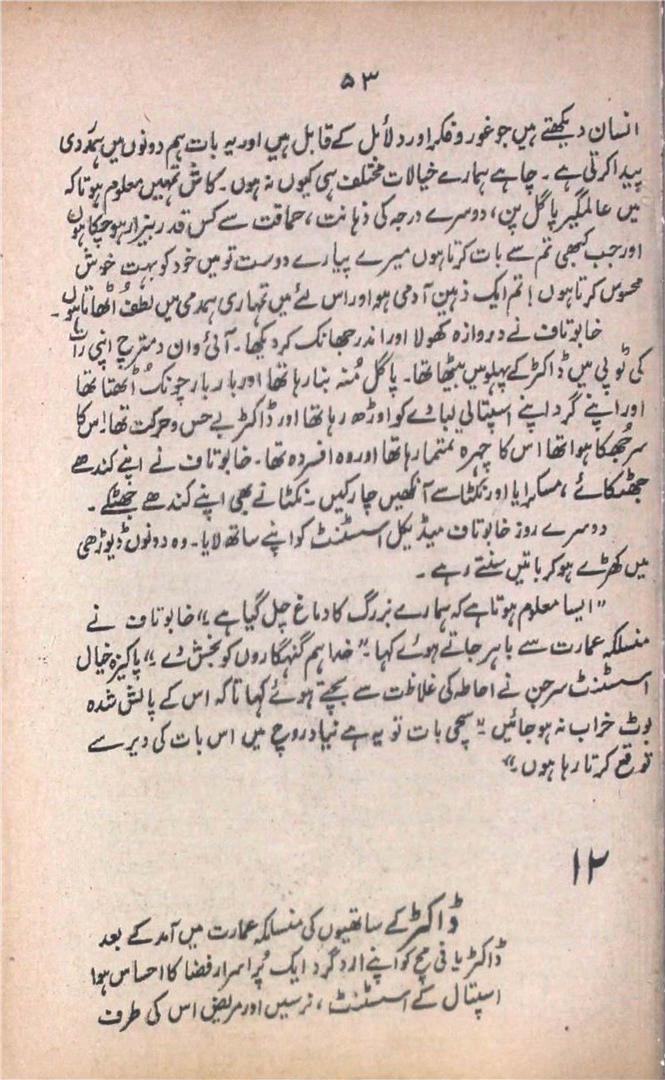 ۵۳
انسان دیکھتے ہیں جو غور و فکر اور دلائل کے قابل ہیں اور یہ بات ہم دونوں میں ہمدردی
پیدا کرتی ہے۔ چاہے ہمارے خیالات مختلف ہی کیوں نہ ہوں۔ کاش تمہیں معلوم ہوتا کہ
میں عالمگیر پاگل پن، دوسرے درجہ کی ذہانت، حماقت سے کس قدر بیزار ہو چکا ہوں
اور جب کبھی تم سے بات کرتا ہوں میرے پیارے دوست تو میں خود کو بہت خوش
محسوس کرتا ہوں! تم ایک ذہین آدمی ہو اور اس لئے میں تمہاری ہمدمی میں لطف اُٹھاتا ہوں۔
خابوتاف نے دروازہ کھولا اور اندر جھانک کر دیکھا۔ آئی وان دمترچ اپنی رات
کی ٹوپی میں ڈاکٹر کے پہلو میں بیٹھا تھا۔ پاگل مُنہ بنا رہا تھا اور بار بار چونک اُٹھتا تھا
اور اپنے گرد اپنے اسپتالی لبادے کو اوڑھ رہا تھا اور ڈاکٹر بے حس و حرکت تھا! اس کا
سر جُھکا ہوا تھا اس کا چہرہ تمتما رہا تھا اور وہ افسردہ تھا۔ خابوتاف نے اپنے کندھے
جھٹکائے، مسکرایا اور نکٹا سے آنکھیں چار کیں۔ نکٹا نے بھی اپنے کندھے جھٹکے۔
دوسرے روز خابوتاف میڈیکل اسسٹنٹ کو اپنے ساتھ لایا۔ وہ دونوں ڈیوڑھی
میں کھڑے ہو کر باتیں سنتے رہے۔
"ایسا معلوم ہوتا ہے کہ ہمارے بزرگ کا دماغ چل گیا ہے" خابوتاف نے
منسلکہ عمارت سے باہر جاتے ہوئے کہا۔ "خدا ہم گنہگاروں کو بخش دے" پاکیزہ خیال
اسسٹنٹ سرجن نے احاطہ کی غلاظت سے بچتے ہوئے کہا تاکہ اس کے پالش شدہ
بوٹ خراب نہ ہو جائیں۔ "سچی بات تو یہ ہے میں اس بات کی دیر سے
توقع کرتا رہا ہوں۔"
۱۲
ڈاکٹر کے ساتھیوں کی منسلکہ عمارت میں آمد کے بعد
ڈاکٹر یافی مچ کو اپنے اردگرد ایک پُراسرار فضا کا احساس ہوا
اسپتال کے اسسٹنٹ، نرسیں اور مریض اس کی طرف